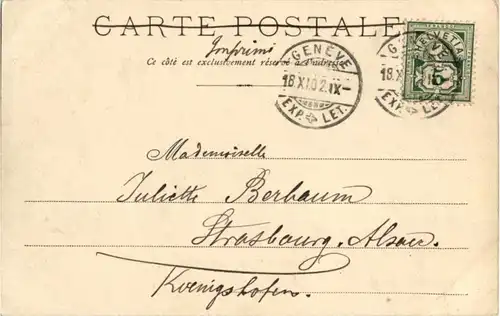 CARTE POSTALE
Imprimé
Ce côté est exclusivement réservé à l'adresse
GENÈVE
18.XI.02.IX-
EXP. LET.
GENÈVE
18.X
EXP. LET.
HELVETIA
5
Mademoiselle
Juliette Berbaum
Strasbourg. Alsace.
Kœnigshofen.